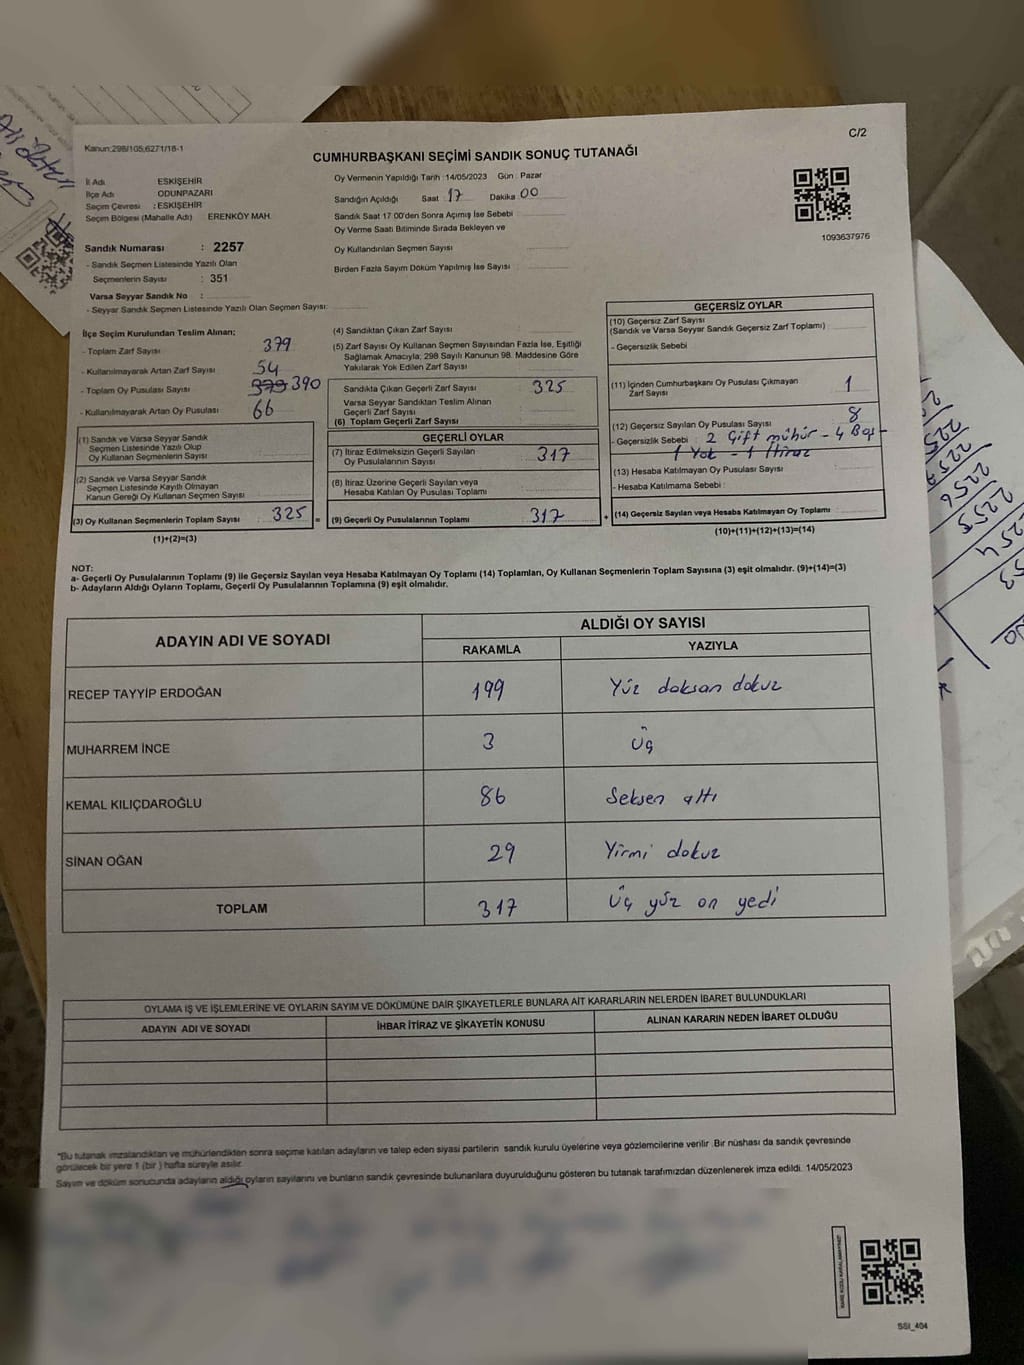 C/2
Kanun:298/105;6271/18-1
CUMHURBAŞKANI SEÇİMİ SANDIK SONUÇ TUTANAĞI
İl Adı ESKİŞEHİR
İlçe Adı ODUNPAZARI
Seçim Çevresi : ESKİŞEHİR
Seçim Bölgesi (Mahalle Adı) ERENKÖY MAH.
Sandık Numarası : 2257
- Sandık Seçmen Listesinde Yazılı Olan
Seçmenlerin Sayısı : 351
Varsa Seyyar Sandık No :
- Seyyar Sandık Seçmen Listesinde Yazılı Olan Seçmen Sayısı:
Oy Vermenin Yapıldığı Tarih :14/05/2023 Gün : Pazar
Sandığın Açıldığı Saat : 17 Dakika 00
Sandık Saat 17.00'den Sonra Açımış İse Sebebi
Oy Verme Saati Bitiminde Sırada Bekleyen ve
Oy Kullandırılan Seçmen Sayısı
Birden Fazla Sayım Döküm Yapılmış İse Sayısı :
1093637976
İlçe Seçim Kurulundan Teslim Alınan;
- Toplam Zarf Sayısı 379
- Kullanılmayarak Artan Zarf Sayısı 54
- Toplam Oy Pusulası Sayısı 379 390
- Kullanılmayarak Artan Oy Pusulası 66
(1) Sandık ve Varsa Seyyar Sandık
Seçmen Listesinde Yazılı Olup
Oy Kullanan Seçmenlerin Sayısı
(2) Sandık ve Varsa Seyyar Sandık
Seçmen Listesinde Kayıtlı Olmayan
Kanun Gereği Oy Kullanan Seçmen Sayısı
(3) Oy Kullanan Seçmenlerin Toplam Sayısı : 325 =
(1)+(2)=(3)
(4) Sandıktan Çıkan Zarf Sayısı
(5) Zarf Sayısı Oy Kullanan Seçmen Sayısından Fazla İse, Eşitliği
Sağlamak Amacıyla; 298 Sayılı Kanunun 98. Maddesine Göre
Yakılarak Yok Edilen Zarf Sayısı
Sandıkta Çıkan Geçerli Zarf Sayısı : 325
Varsa Seyyar Sandıktan Teslim Alınan
Geçerli Zarf Sayısı
(6) Toplam Geçerli Zarf Sayısı
GEÇERLİ OYLAR
(7) İtiraz Edilmeksizin Geçerli Sayılan
Oy Pusulalarının Sayısı : 317
(8) İtiraz Üzerine Geçerli Sayılan veya
Hesaba Katılan Oy Pusulası Toplamı
(9) Geçerli Oy Pusulalarının Toplamı 317 +
GEÇERSİZ OYLAR
(10) Geçersiz Zarf Sayısı
(Sandık ve Varsa Seyyar Sandık Geçersiz Zarf Toplamı)
- Geçersizlik Sebebi
(11) İçinden Cumhurbaşkanı Oy Pusulası Çıkmayan
Zarf Sayısı 1
(12) Geçersiz Sayılan Oy Pusulası Sayısı : 8
- Geçersizlik Sebebi : 2 Çift mühür - 4 Boş -
1 Yok - 1 İtiraz
(13) Hesaba Katılmayan Oy Pusulası Sayısı
- Hesaba Katılmama Sebebi :
(14) Geçersiz Sayılan veya Hesaba Katılmayan Oy Toplamı
(10)+(11)+(12)+(13)=(14)
NOT:
a- Geçerli Oy Pusulalarının Toplamı (9) ile Geçersiz Sayılan veya Hesaba Katılmayan Oy Toplamı (14) Toplamları, Oy Kullanan Seçmenlerin Toplam Sayısına (3) eşit olmalıdır. (9)+(14)=(3)
b- Adayların Aldığı Oyların Toplamı, Geçerli Oy Pusulalarının Toplamına (9) eşit olmalıdır.
ADAYIN ADI VE SOYADI ALDIĞI OY SAYISI
RAKAMLA YAZIYLA
RECEP TAYYİP ERDOĞAN 199 Yüz doksan dokuz
MUHARREM İNCE 3 Üç
KEMAL KILIÇDAROĞLU 86 Seksen altı
SİNAN OĞAN 29 Yirmi dokuz
TOPLAM 317 Üç yüz on yedi
OYLAMA İŞ VE İŞLEMLERİNE VE OYLARIN SAYIM VE DÖKÜMÜNE DAİR ŞİKAYETLERLE BUNLARA AİT KARARLARIN NELERDEN İBARET BULUNDUKLARI
ADAYIN ADI VE SOYADI İHBAR İTİRAZ VE ŞİKAYETİN KONUSU ALINAN KARARIN NEDEN İBARET OLDUĞU
*Bu tutanak imzalandıktan ve mühürlendikten sonra seçime katılan adayların ve talep eden siyasi partilerin sandık kurulu üyelerine veya gözlemcilerine verilir .Bir nüshası da sandık çevresinde
görülecek bir yere 1 (bir ) hafta süreyle asılır.
Sayım ve döküm sonucunda adayların aldığı oyların sayılarını ve bunların sandık çevresinde bulunanlara duyurulduğunu gösteren bu tutanak tarafımızdan düzenlenerek imza edildi. 14/05/2023
SSI_404
2257
2256
2255